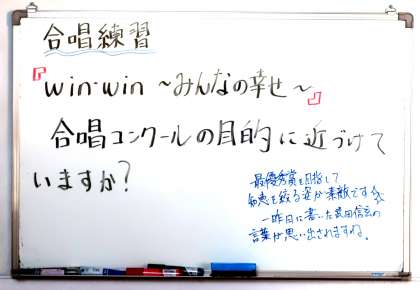 合唱練習
『win-win ～みんなの幸せ～』
合唱コンクールの目的に近づけて
いますか?
最優秀賞を目指して
知恵を絞る姿が素敵です
一昨日に書いた武田信玄の
言葉が思い出されますね。